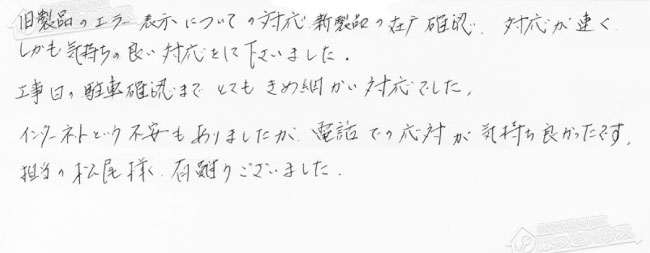 旧製品のエラー表示についての対応、新製品の在戸確認、対応が速く
しかも気持ちの良い対応をして下さいました。
工事日の駐車確認までとてもきめ細かい対応でした。
インターネットという不安もありましたが、電話での応対が気持ち良かったです。
担当の松尾様、有難うございました。